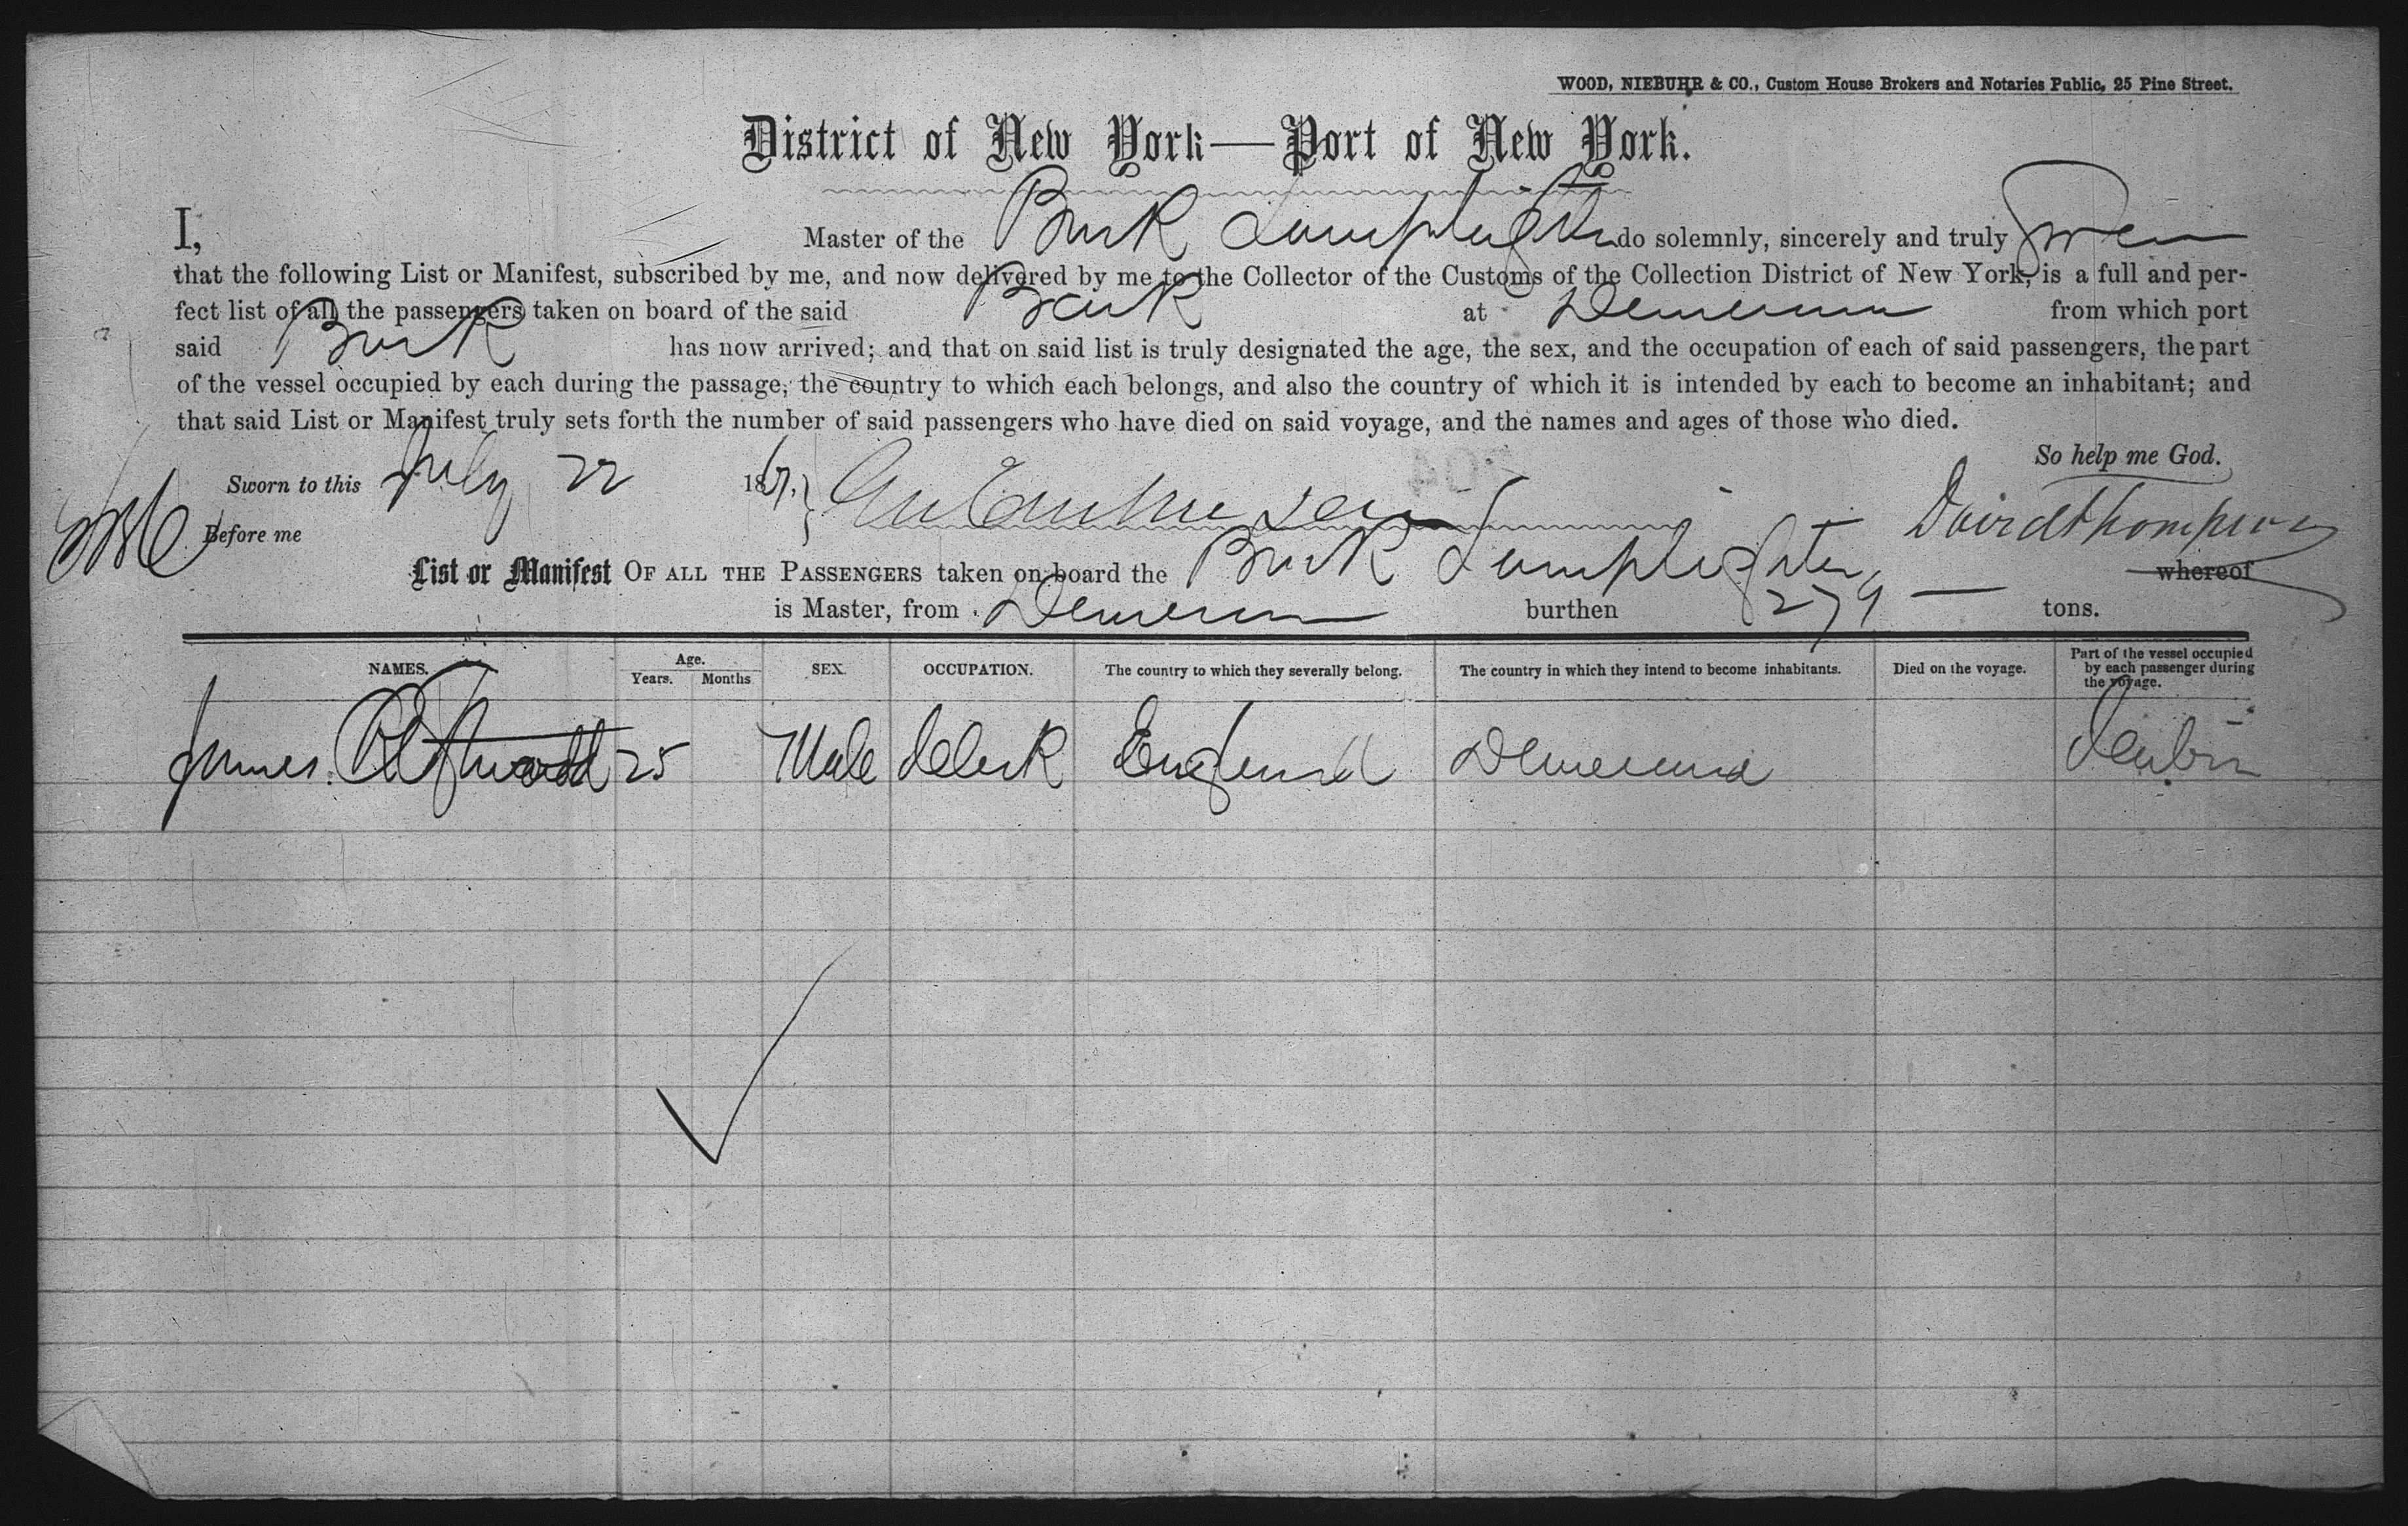 WOOD, NIEBUHR & CO., Custom House Brokers and Notaries Public, 25 Pine Street.
District of New York—Port of New York.
I, Master of the Bark Lamplighter do solemnly, sincerely and truly Swear
that the following List or Manifest, subscribed by me, and now delivered by me to the Collector of the Customs of the Collection District of New York, is a full and per-
fect list of all the passengers taken on board of the said Bark at Demerara from which port
said Bark has now arrived; and that on said list is truly designated the age, the sex, and the occupation of each of said passengers, the part
of the vessel occupied by each during the passage, the country to which each belongs, and also the country of which it is intended by each to become an inhabitant; and
that said List or Manifest truly sets forth the number of said passengers who have died on said voyage, and the names and ages of those who died.
So help me God.
Sworn to this July 22 1867,
David Thompson
Before me
List or Manifest OF ALL THE PASSENGERS taken on board the Bark Lamplighter whereof
is Master, from Demerara burthen 279 — tons.
NAMES. Age. Years. Months SEX. OCCUPATION. The country to which they severally belong. The country in which they intend to become inhabitants. Died on the voyage. Part of the vessel occupied by each passenger during the voyage.
James 25 Male Clerk England Demerara Cabin